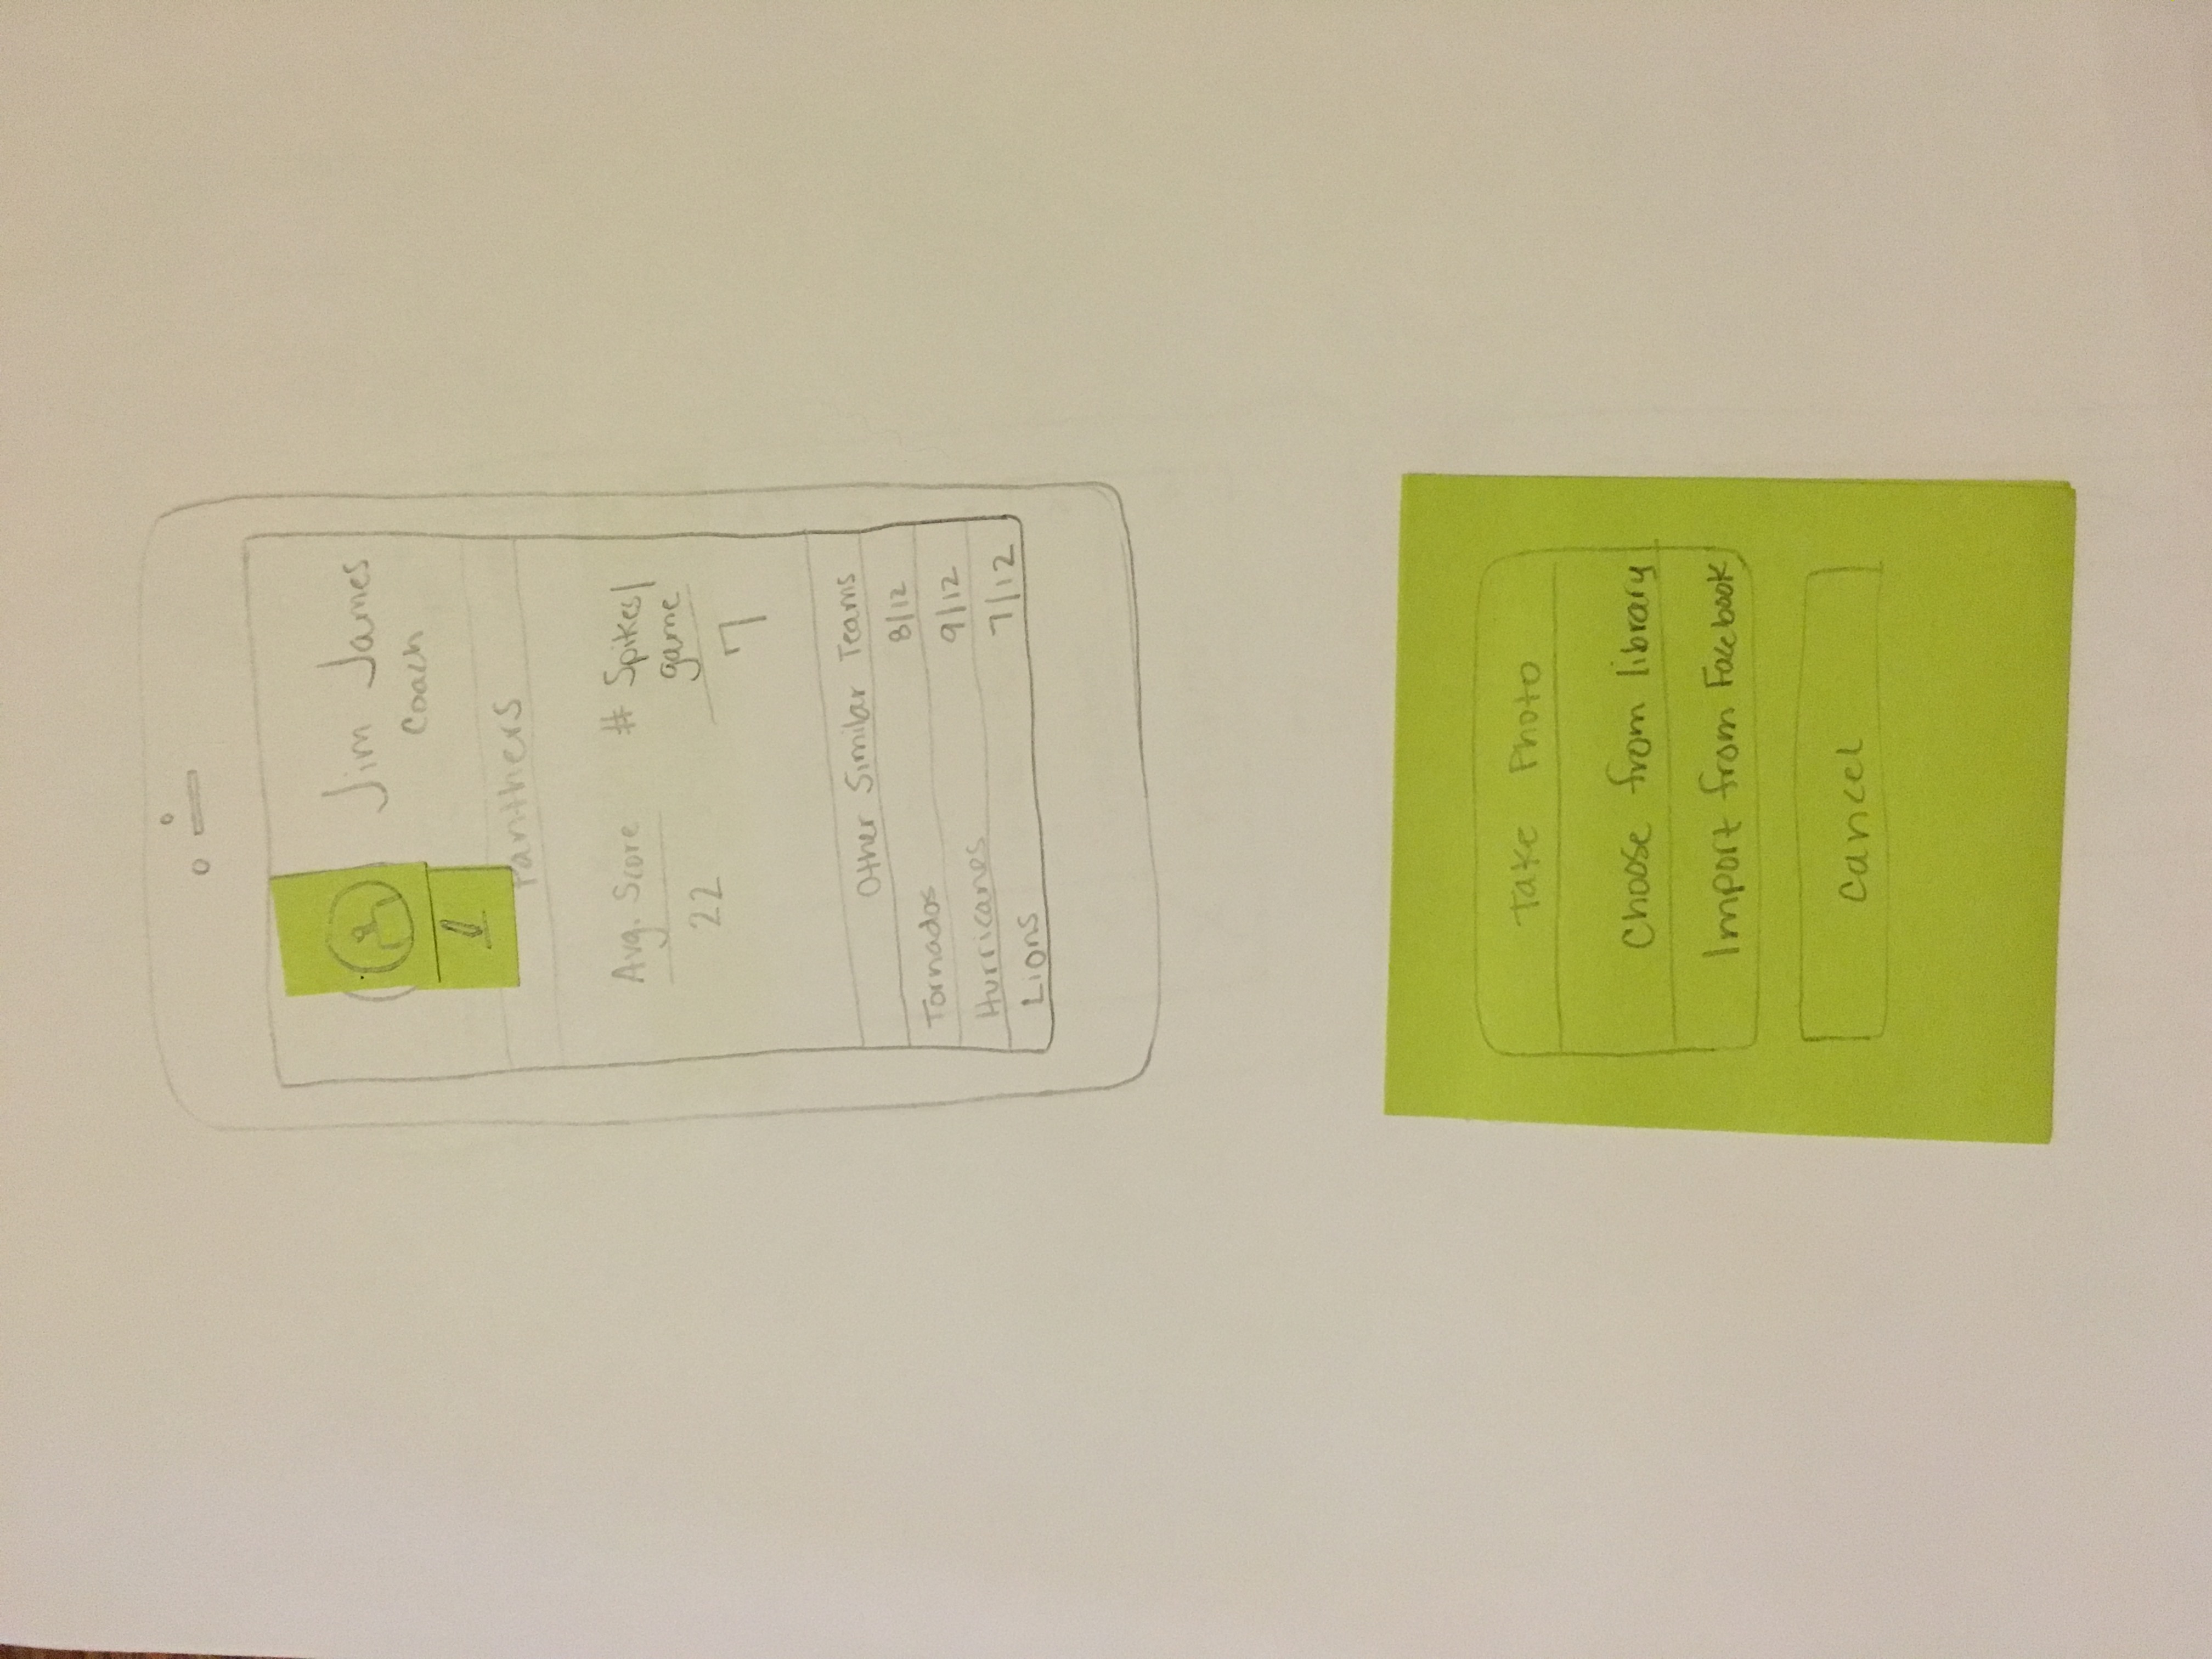 Jim James
Coach
Panthers
Avg. Score
22
# Spikes/
game
7
Other Similar Teams
Tornados 8/12
Hurricanes 9/12
Lions 7/12
Take Photo
Choose from library
Import from Facebook
Cancel